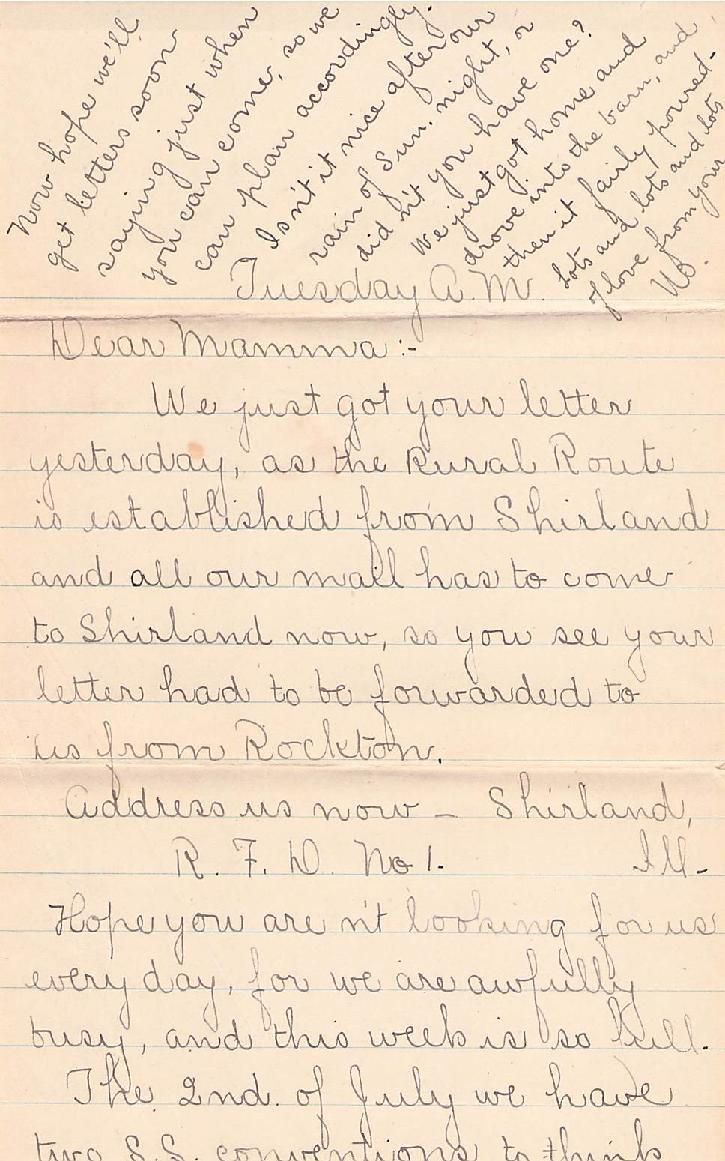 Now hope we'll
get letters soon
saying just when
you can come, so we
can plan accordingly.
Isn't it nice after our
rain of Sun. night, or
did n't you have one?
We just got home and
drove into the barn, and
then it fairly poured-
Lots and lots and lots
of love from your
Us.
Tuesday A.M.
Dear Mamma:-
We just got your letter
yesterday, as the Rural Route
is established from Shirland
and all our mail has to come
to Shirland now, so you see your
letter had to be forwarded to
us from Rockton.
Address us now - Shirland,
R. F. D. No 1. Ill-
Hope you are n't looking for us
every day, for we are awfully
busy, and this week is so full.
The 2nd. of July we have
two S.S. conventions to think